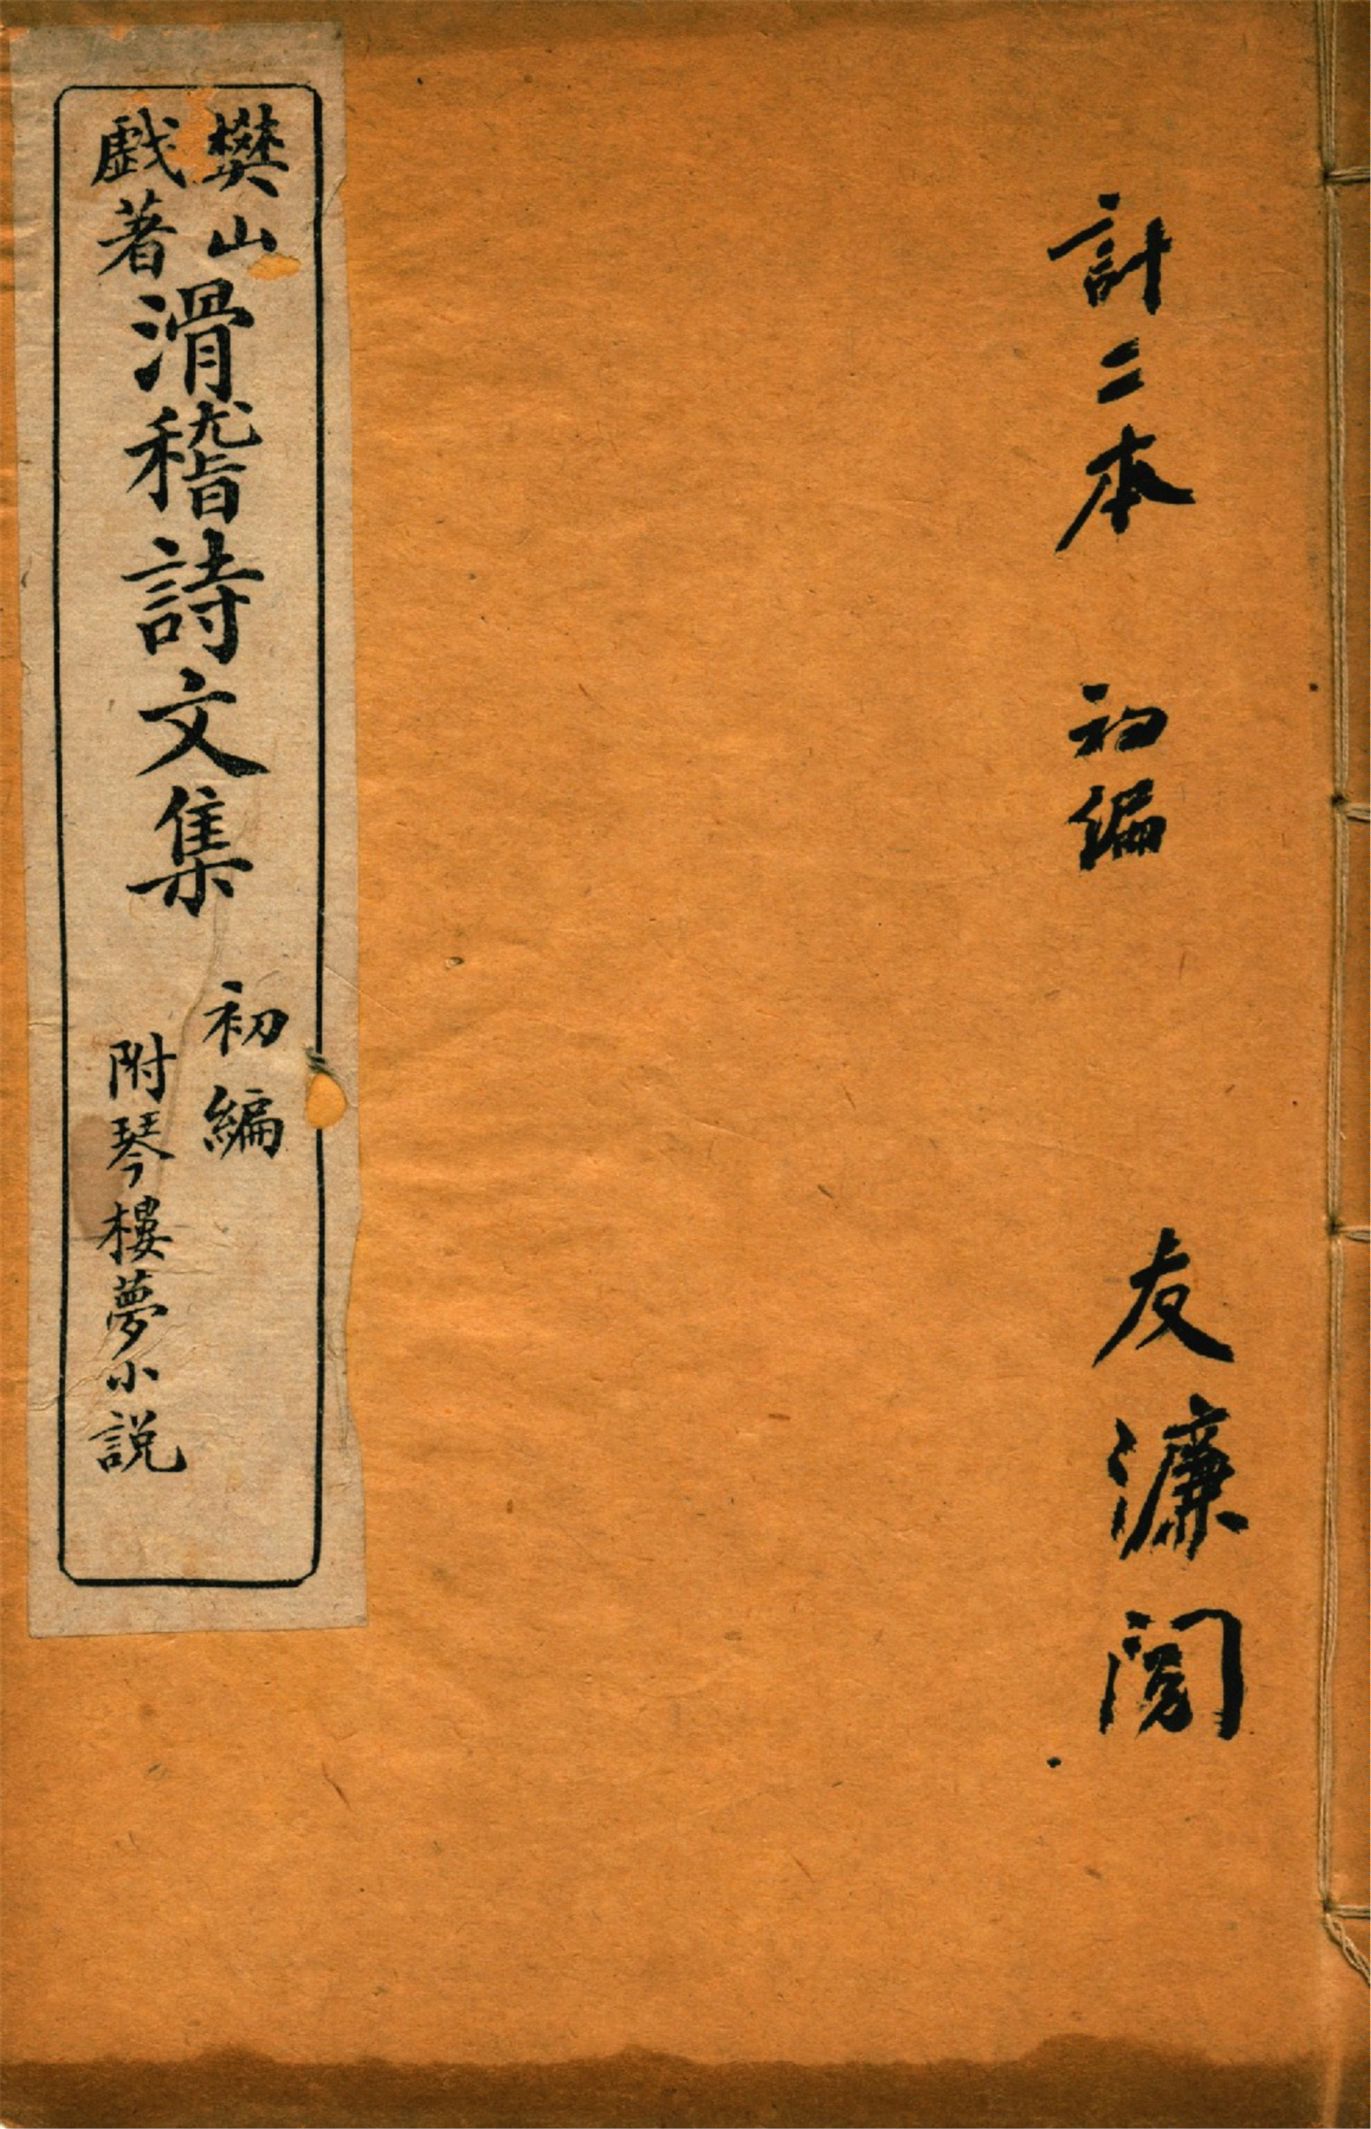 計二本 初編
友濂閱
樊山
戯著
滑稽詩文集
初編
附琴樓夢小説